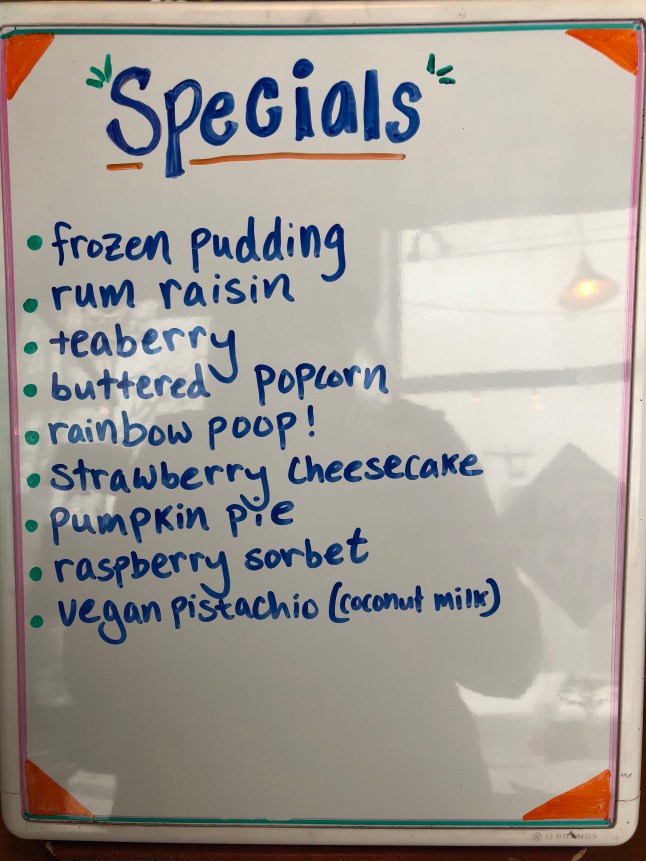 Specials
• frozen pudding
• rum raisin
• teaberry
• buttered popcorn
• rainbow poop!
• strawberry cheesecake
• pumpkin pie
• raspberry sorbet
• vegan pistachio (coconut milk)
U BRANDS